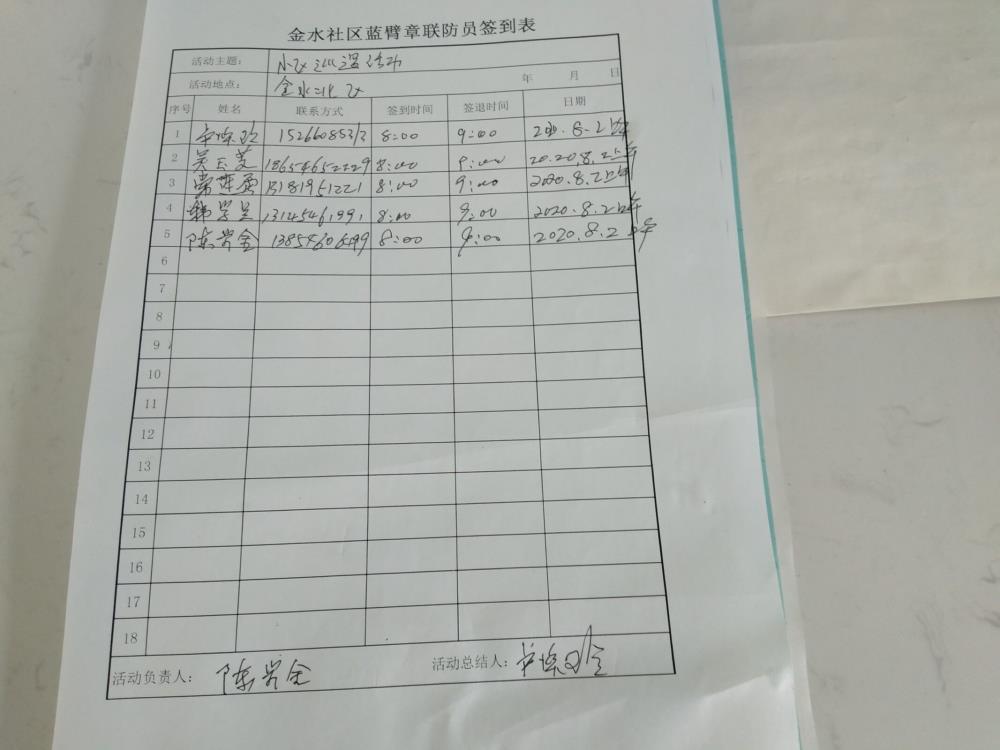 金水社区蓝臂章联防员签到表
活动主题： 小区巡逻活动
活动地点： 金水北区 年 月 日
序号 姓名 联系方式 签到时间 签退时间 日期
1 8:00 9:00 2020.8.2上午
2 吴玉芝 18654652229 8:00 9:00 2020.8.2上午
3 13181951221 8:00 9:00 2020.8.2上午
4 韩学兰 13145461991 8:00 9:00 2020.8.2上午
5 陈兴金 13854606499 8:00 9:00 2020.8.2上午
6
7
8
9
10
11
12
13
14
15
16
17
18
活动负责人： 陈兴金 活动总结人：